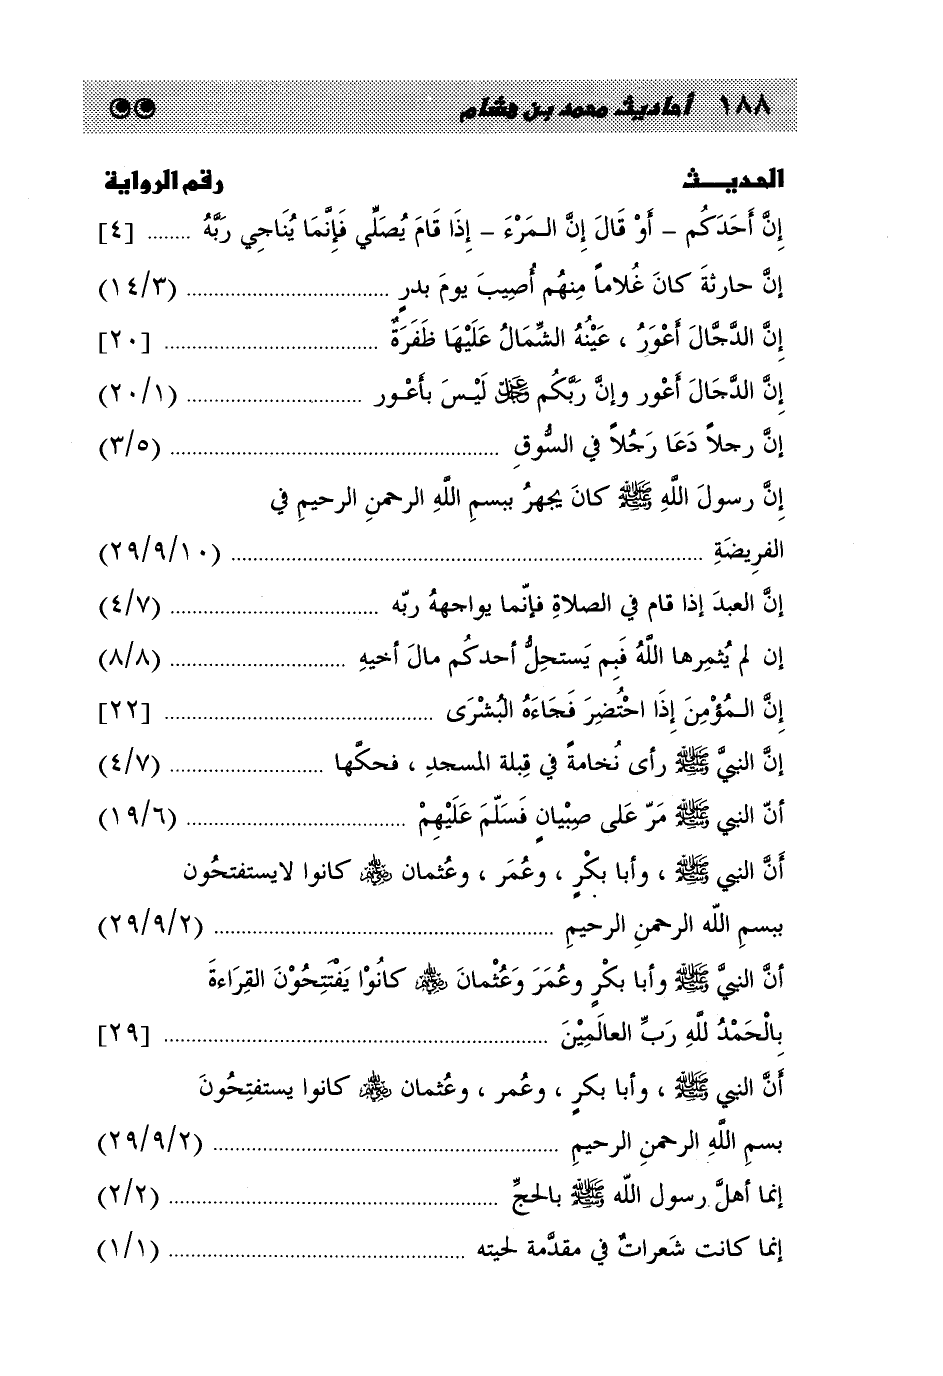 ١٨٨ أحاديث محمد بن هشام
الحديـــث رقم الرواية
إِنَّ أَحَدَكُم – أَوْ قَالَ إِنَّ الـمَرْءَ – إِذَا قَامَ يُصَلِّي فَإِنَّمَا يُنَاجِي رَبَّهُ ........ [٤]
إنَّ حارثةَ كانَ غُلاماً مِنهُم أُصِيبَ يومَ بدرٍ ........ (١٤/٣)
إِنَّ الدَّجَّالَ أَعْوَرُ ، عَيْنُهُ الشِّمَالُ عَلَيْهَا ظَفَرَةٌ ........ [٢٠]
إِنَّ الدَّجَالَ أعْور وإنَّ رَبَّكُم ﷿ لَيْـسَ بأعْـور ........ (٢٠/١)
إنَّ رجلاً دَعَا رَجُلاً في السُّوقِ ........ (٣/٥)
إِنَّ رسولَ اللَّهِ ﷺ كانَ يجهرُ ببسمِ اللَّهِ الرحمنِ الرحيمِ في
الفرِيضَةِ ........ (٢٩/٩/١٠)
إنَّ العبدَ إذا قام في الصلاةِ فإنّما يواجههُ ربّه ........ (٤/٧)
إن لم يُثمِرها اللَّهُ فَبِم يَستحِلُّ أحدكُم مالَ أخيهِ ........ (٨/٨)
إِنَّ الـمُؤْمِنَ إِذَا احْتُضِرَ فَجَاءَهُ البُشْرَى ........ [٢٢]
إنَّ النبيَّ ﷺ رأى نُخامةً في قِبلة المسجدِ ، فحكَّها ........ (٤/٧)
أنّ النبي ﷺ مَرّ عَلى صِبْيانٍ فَسَلّمَ عَلَيْهِمْ ........ (١٩/٦)
أَنَّ النبي ﷺ ، وأبا بكْرٍ ، وعُمَر ، وعُثمان ﵃ كانوا لايستفتحُون
ببسمِ اللّه الرحمنِ الرحيمِ ........ (٢٩/٩/٢)
أنَّ النبيَّ ﷺ وأبا بكْرٍ وعُمَرَ وَعُثْمانَ ﵃ كانُوْا يَفْتَتِحُوْنَ القِرَاءةَ
بِالْحَمْدُ للَّهِ رَبِّ العالَمِيْنَ ........ [٢٩]
أَنَّ النبي ﷺ ، وأبا بكرٍ ، وعُمر ، وعُثمان ﵃ كانوا يستفتِحُونَ
بسمِ اللَّهِ الرحمنِ الرحيمِ ........ (٢٩/٩/٢)
إنما أهلَّ رسول اللّه ﷺ بالحجِّ ........ (٢/٢)
إنما كانت شَعراتٌ في مقدَّمة لحيته ........ (١/١)